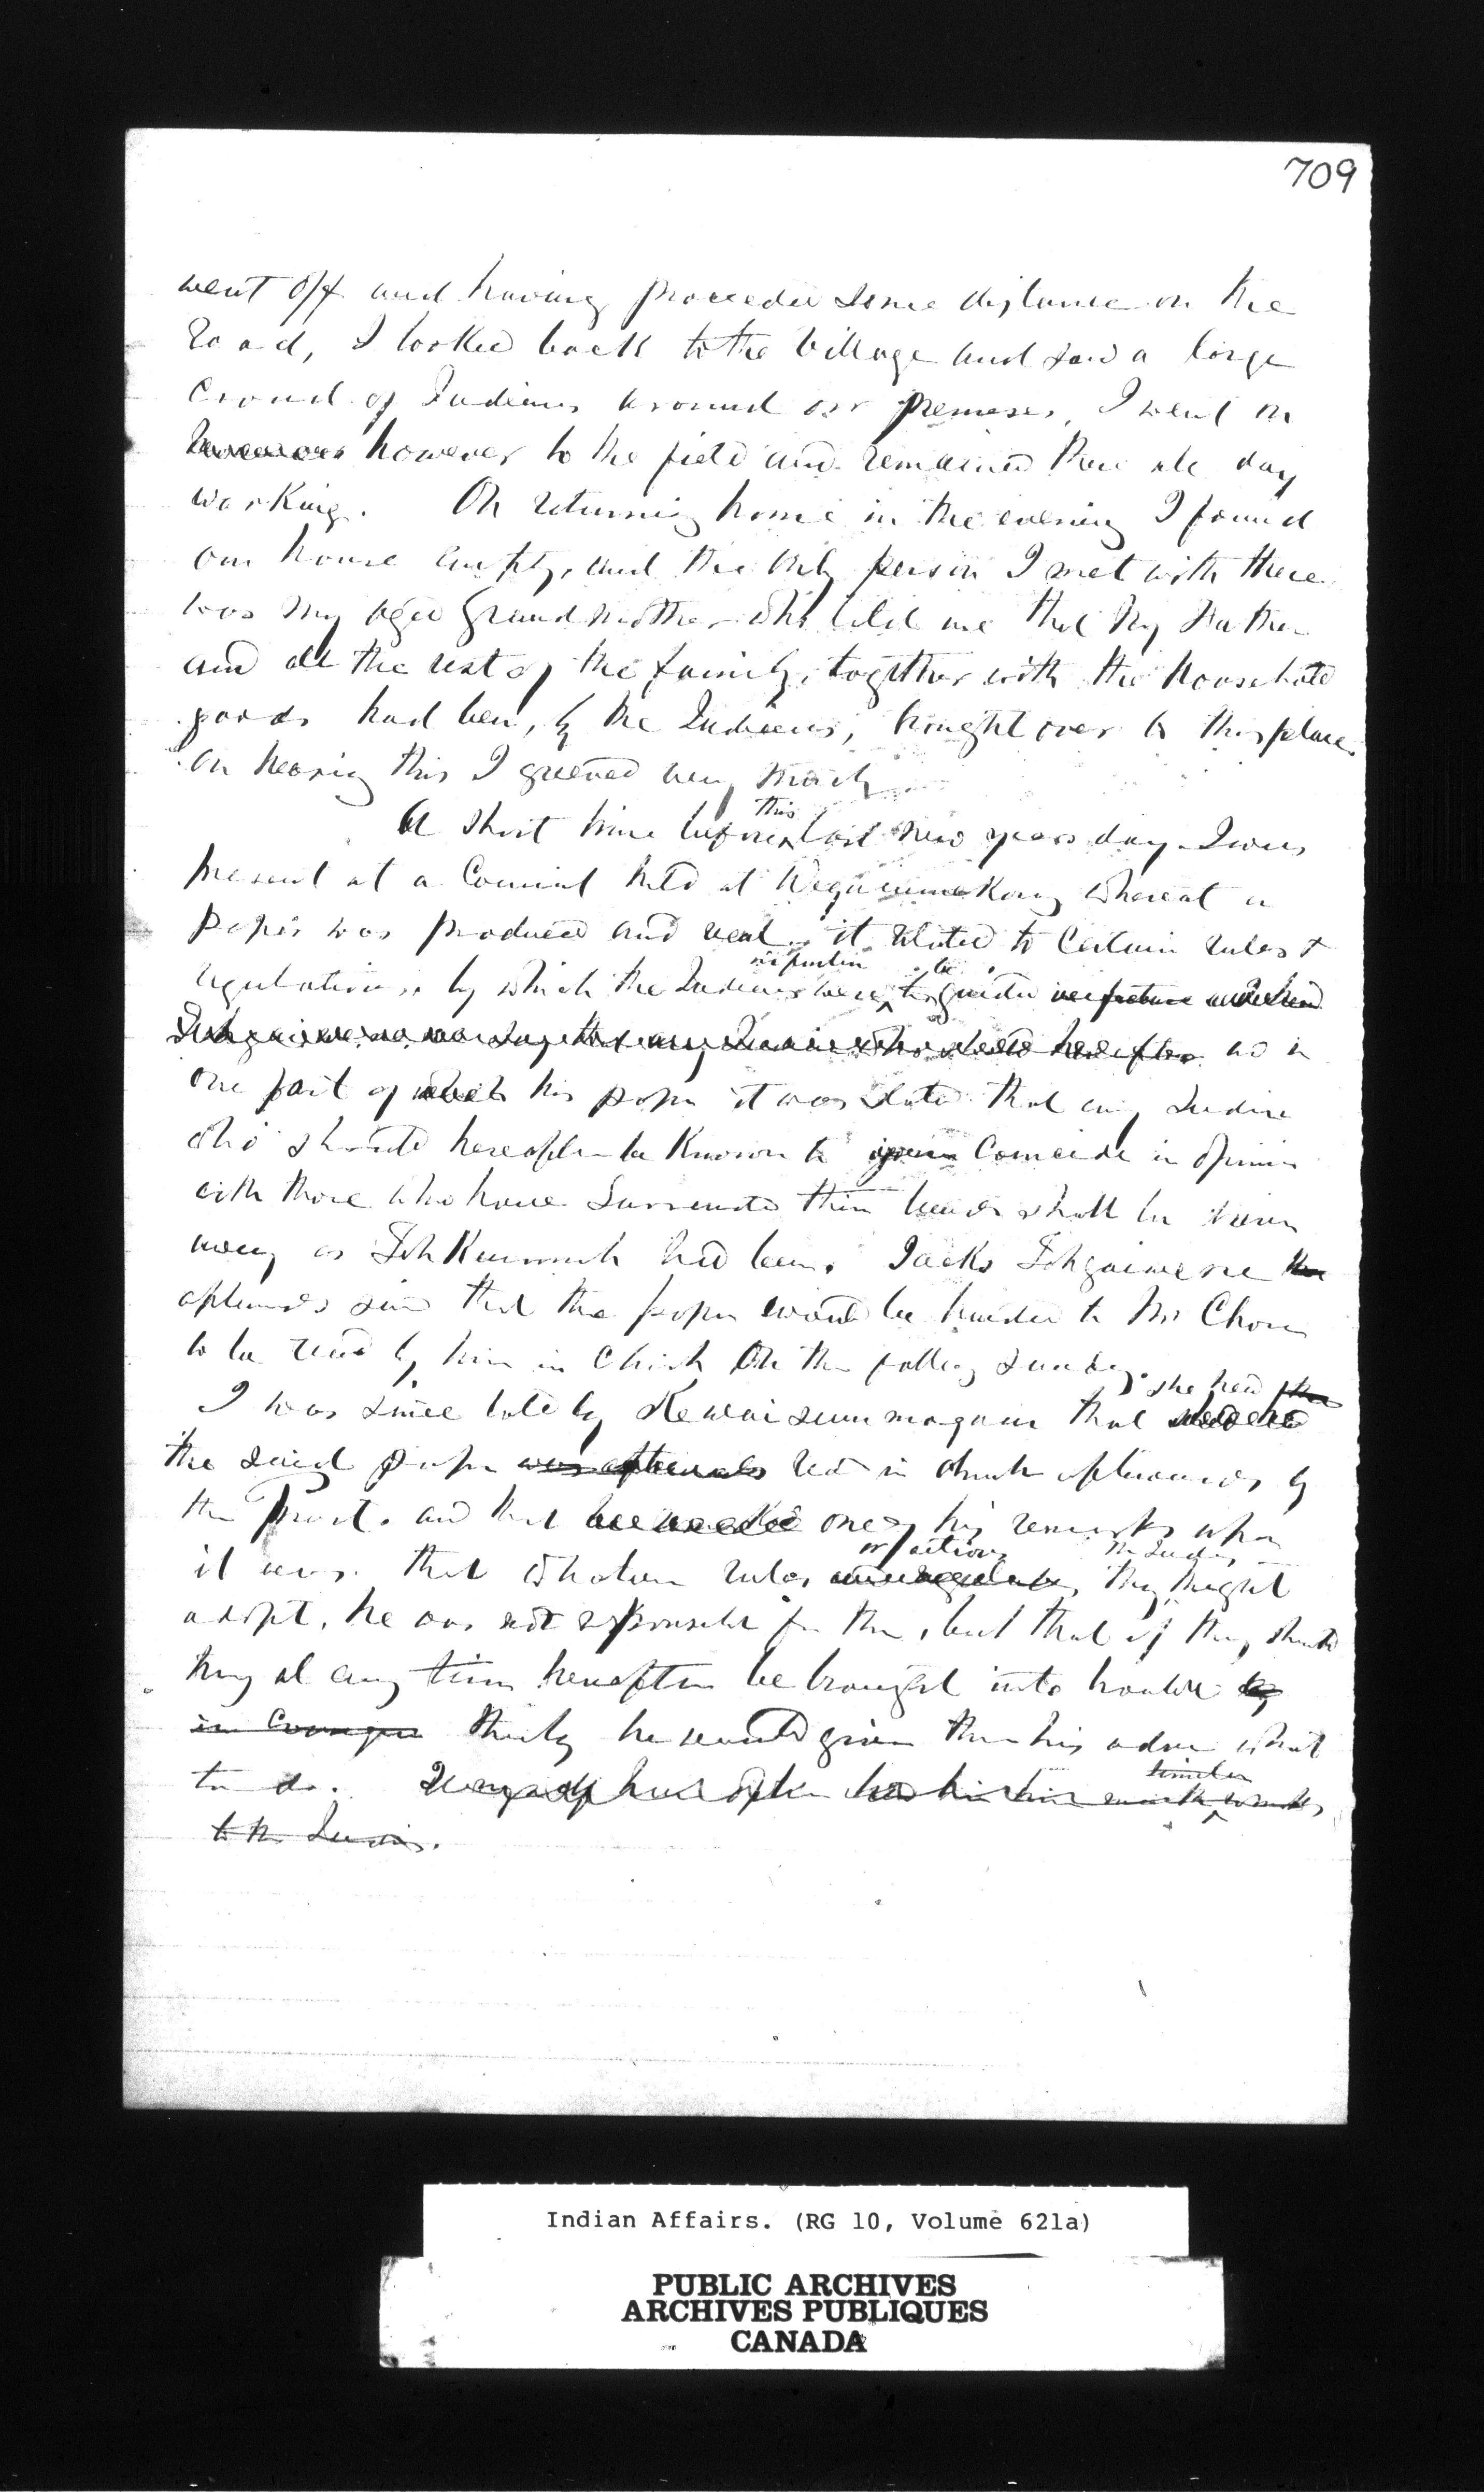 709
went off and having proceeded some distance on the
Road, I looked back to the Village and saw a large
Crowd of Indians around our premises, I went on
however to the field and remained there all day
working. On returning home in the evening I found
our house empty, and the only person I met with there
was my aged Grandmother who told me that my Father
and all the rest of the family, together with the household
goods had been, by the Indians, brought over to this place.
On hearing this I grieved very much
this
A short time before last New years day I was
present at a Council held at Wequemekong whereat a
paper was produced and read, it related to Certain rules &
in future be
regulations, by which the Indians were to guided
any Indian who should hereafter and in
one part of this paper it was stated that any Indian
who should hereafter be known to Coincide in opinion
with those who have Surrendered their lands shall be driven
away as had been. Jacko
afterwards said that the paper would be handed to Mr Chone
to be read by him in Church On the following Sunday.
she heard
I was since told by that
the said paper was afterwards read in church afterwards by
the Priest. and that one of his remarks upon
or actions the Indians
it was. that whatever rules they might
adopt, he was not responsible for them, but that if they should
they at any time hereafter be brought into trouble by
thereby he would given them his advice what
to do. have often
to the Indians.
Indian Affairs. (RG 10, Volume 621a)
PUBLIC ARCHIVES
ARCHIVES PUBLIQUES
CANADA